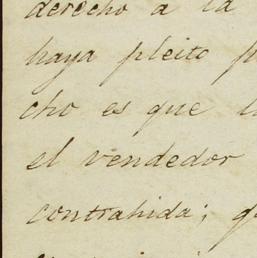 derecho a la
haya pleito
cho es que
el vendedor
contrahida;